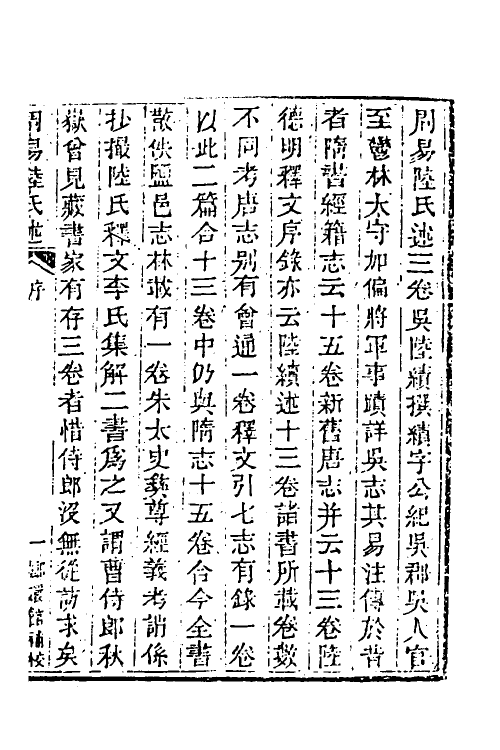 周易陸氏述三卷吳陸績撰績字公紀吳郡吳人官
至鬱林太守加偏將軍事蹟詳吳志其易注傳於昔
者隋書經籍志云十五卷新舊唐志并云十三卷陸
德明釋文序錄亦云陸績述十三卷諸書所載卷數
不同考唐志别有會通一卷釋文引七志有錄一卷
以此二篇合十三卷中仍與隋志十五卷合今全書
散佚鹽邑志林載有一卷朱太史彝尊經義考謂係
抄撮陸氏釋文李氏集解二書爲之又謂曹侍郎秋
嶽曾見藏書家有存三卷者惜侍郎沒無從訪求矣
周易陸氏述 序 一 嫏嬛館補校